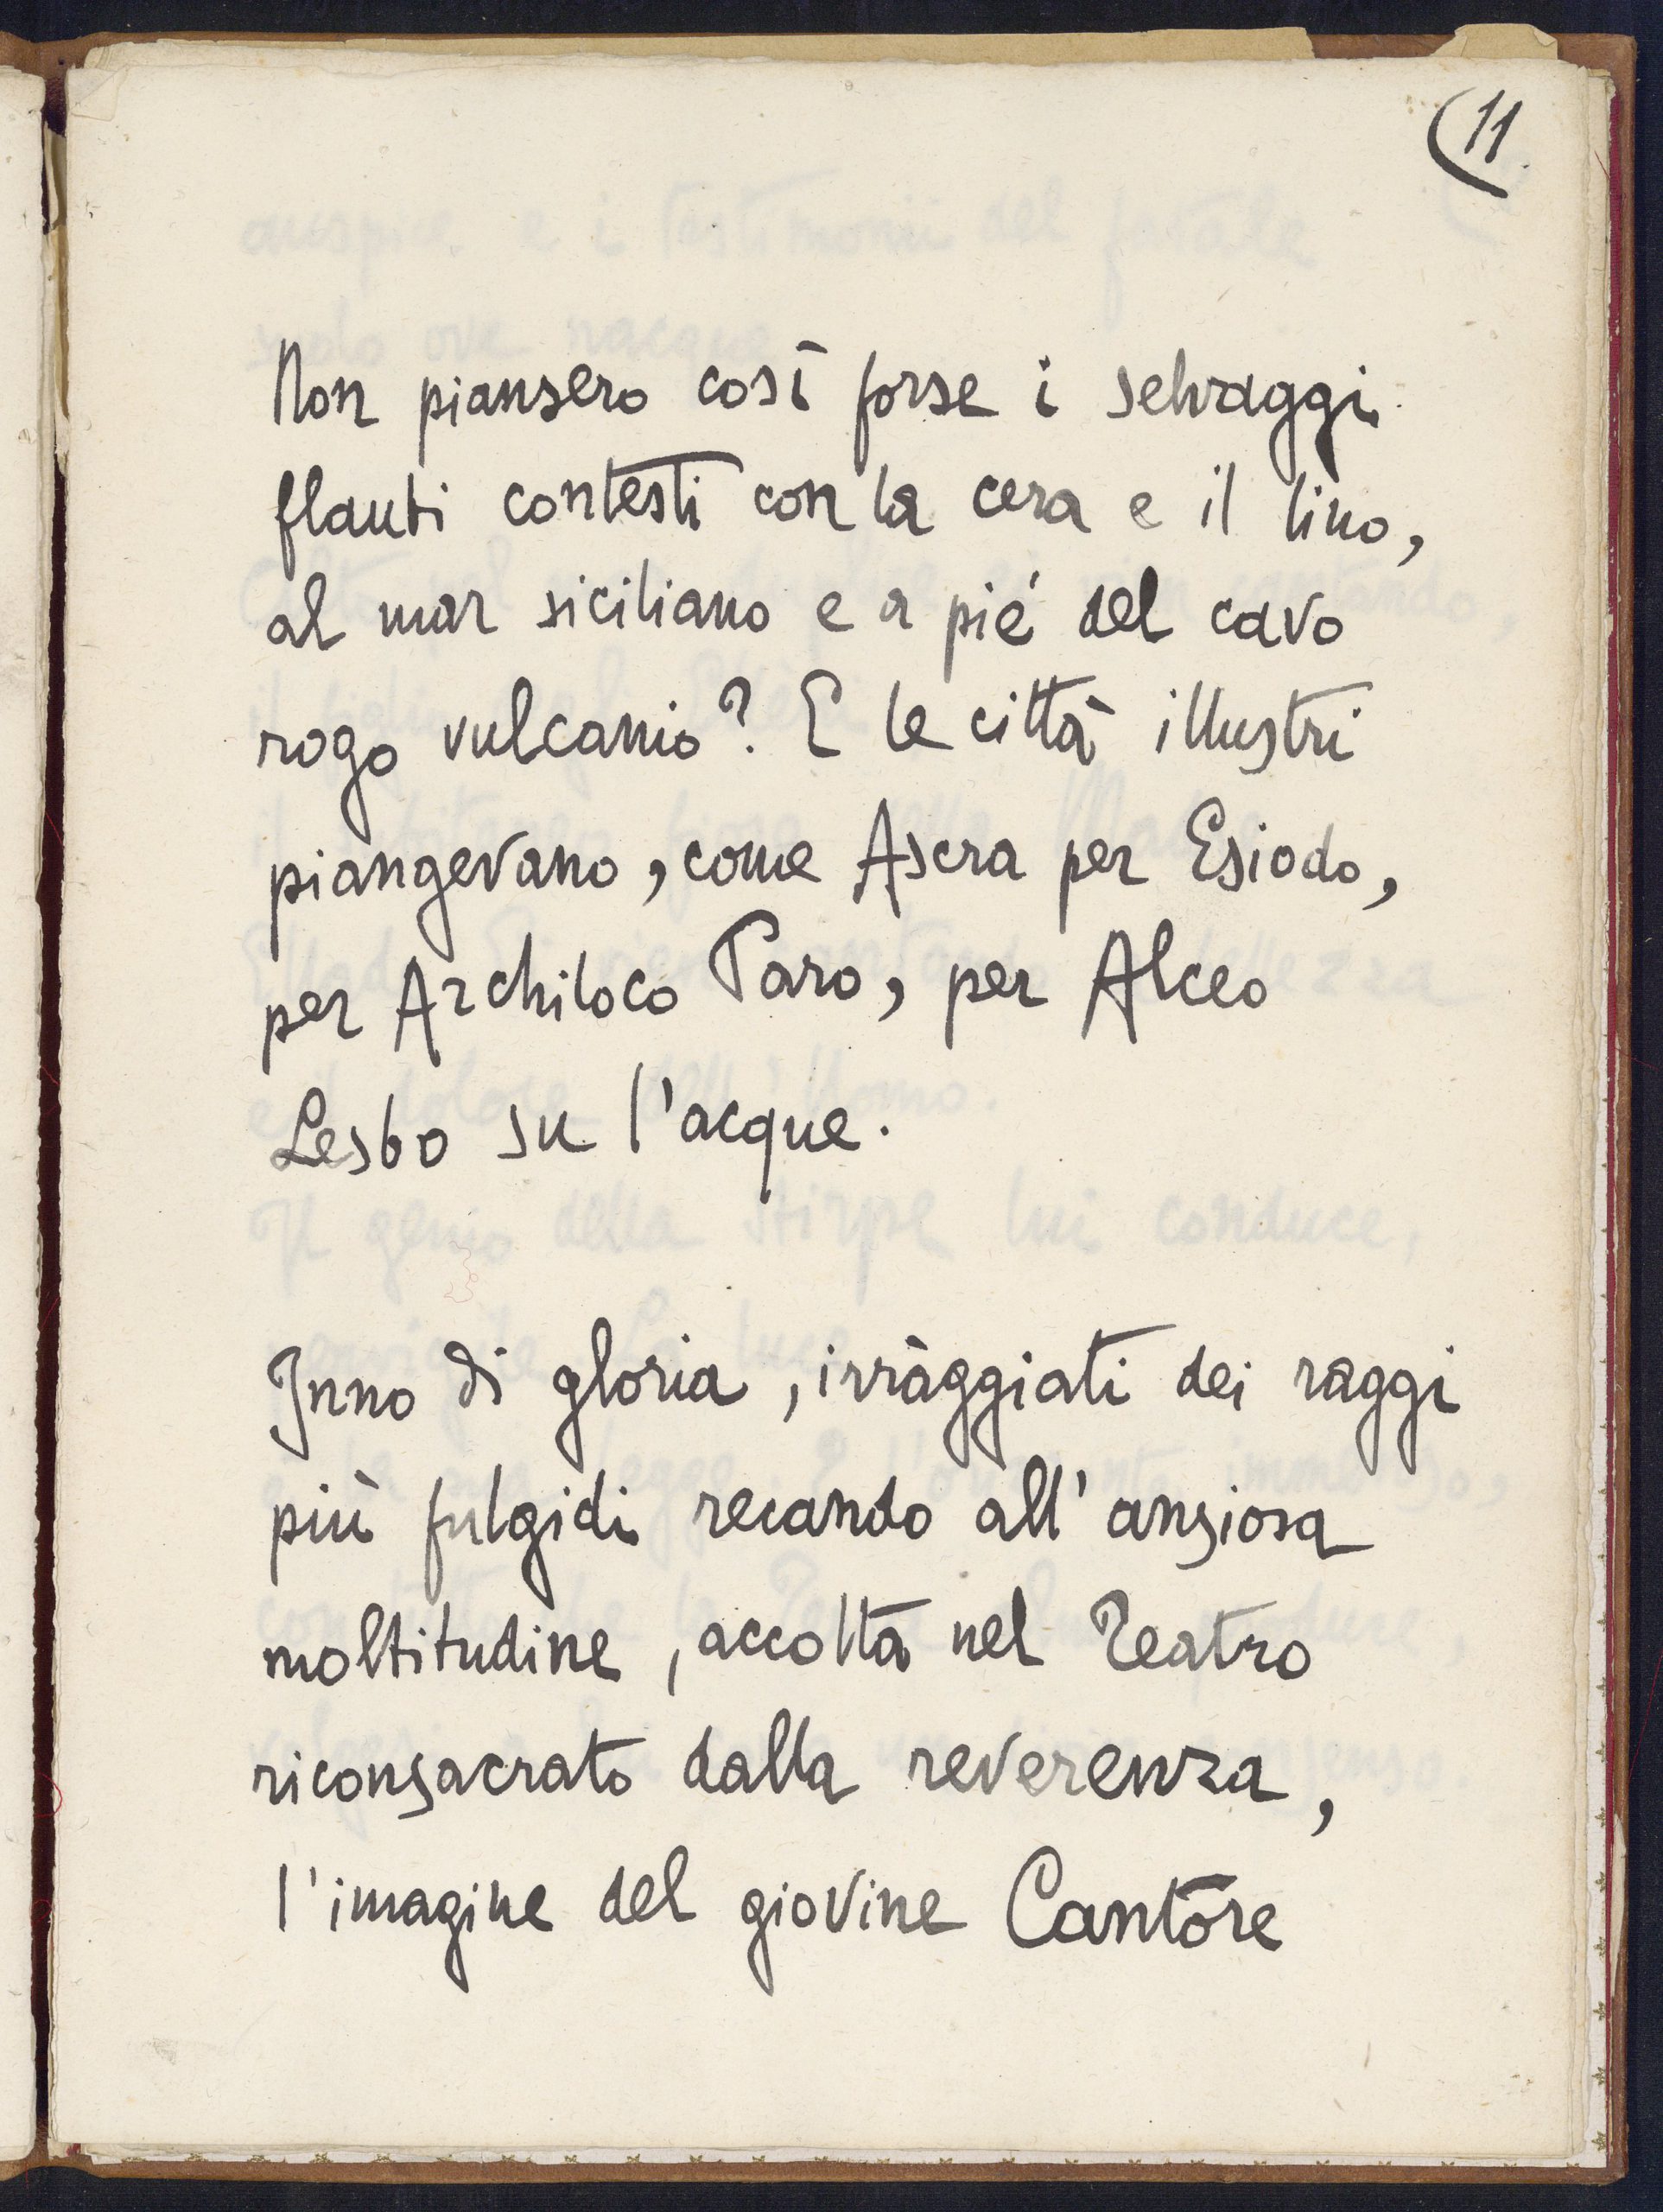 (11
Non piansero così forse i selvaggi
flauti contesti con la cera e il lino,
al mar siciliano e a pié del cavo
rogo vulcanio? E le città illustri
piangevano, come Ascra per Esiodo,
per Archiloco Paro, per Alceo
Lesbo su l'acque.
Inno di gloria, irràggiati dei raggi
più fulgidi recando all'ansiosa
moltitudine, accolta nel Teatro
riconsacrato dalla reverenza,
l'imagine del giovine Cantore